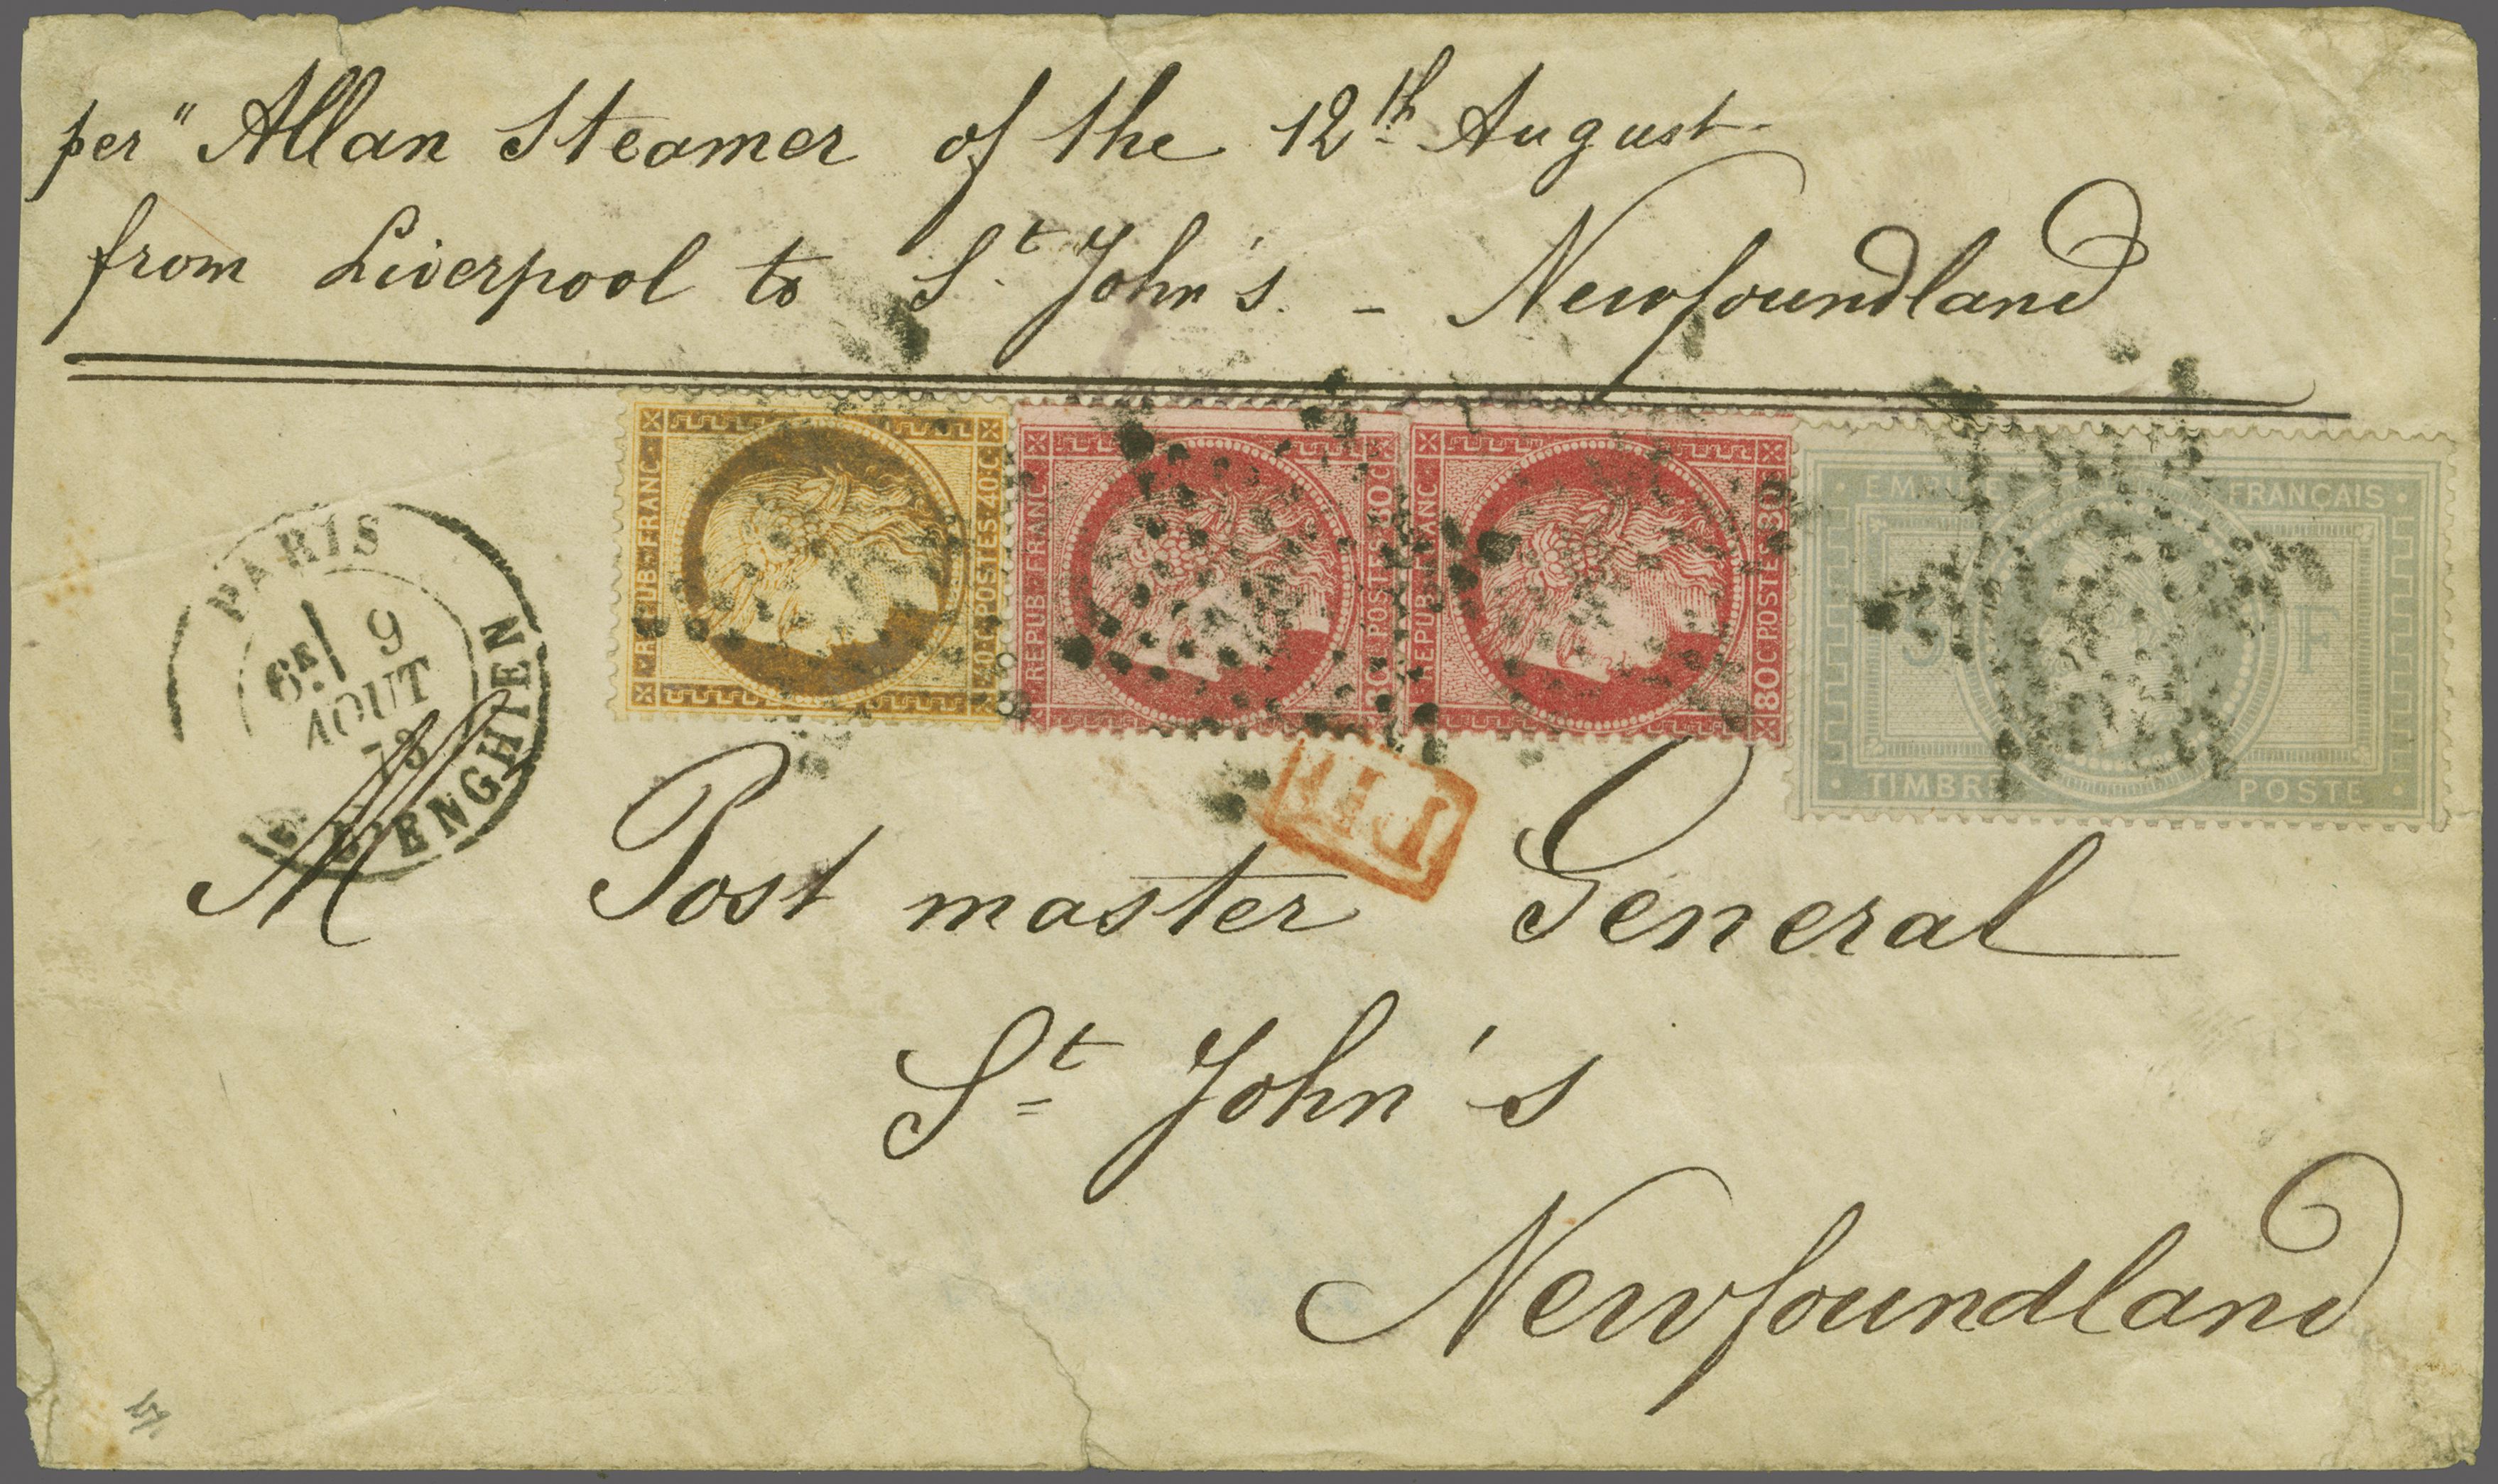 per " Allan Steamer of the 12th August
from Liverpool to St John's. - Newfoundland
PARIS
6E 9
AOUT
73
D'ENGHIEN
REPUB. FRANC.
40.C. POSTES. 40.C.
REPUB. FRANC.
80C POSTES 80C
REPUB. FRANC.
80C POSTES 80C
EMPIRE FRANÇAIS
5 F
TIMBRE POSTE
PD
M Post master General
St John's
Newfoundland